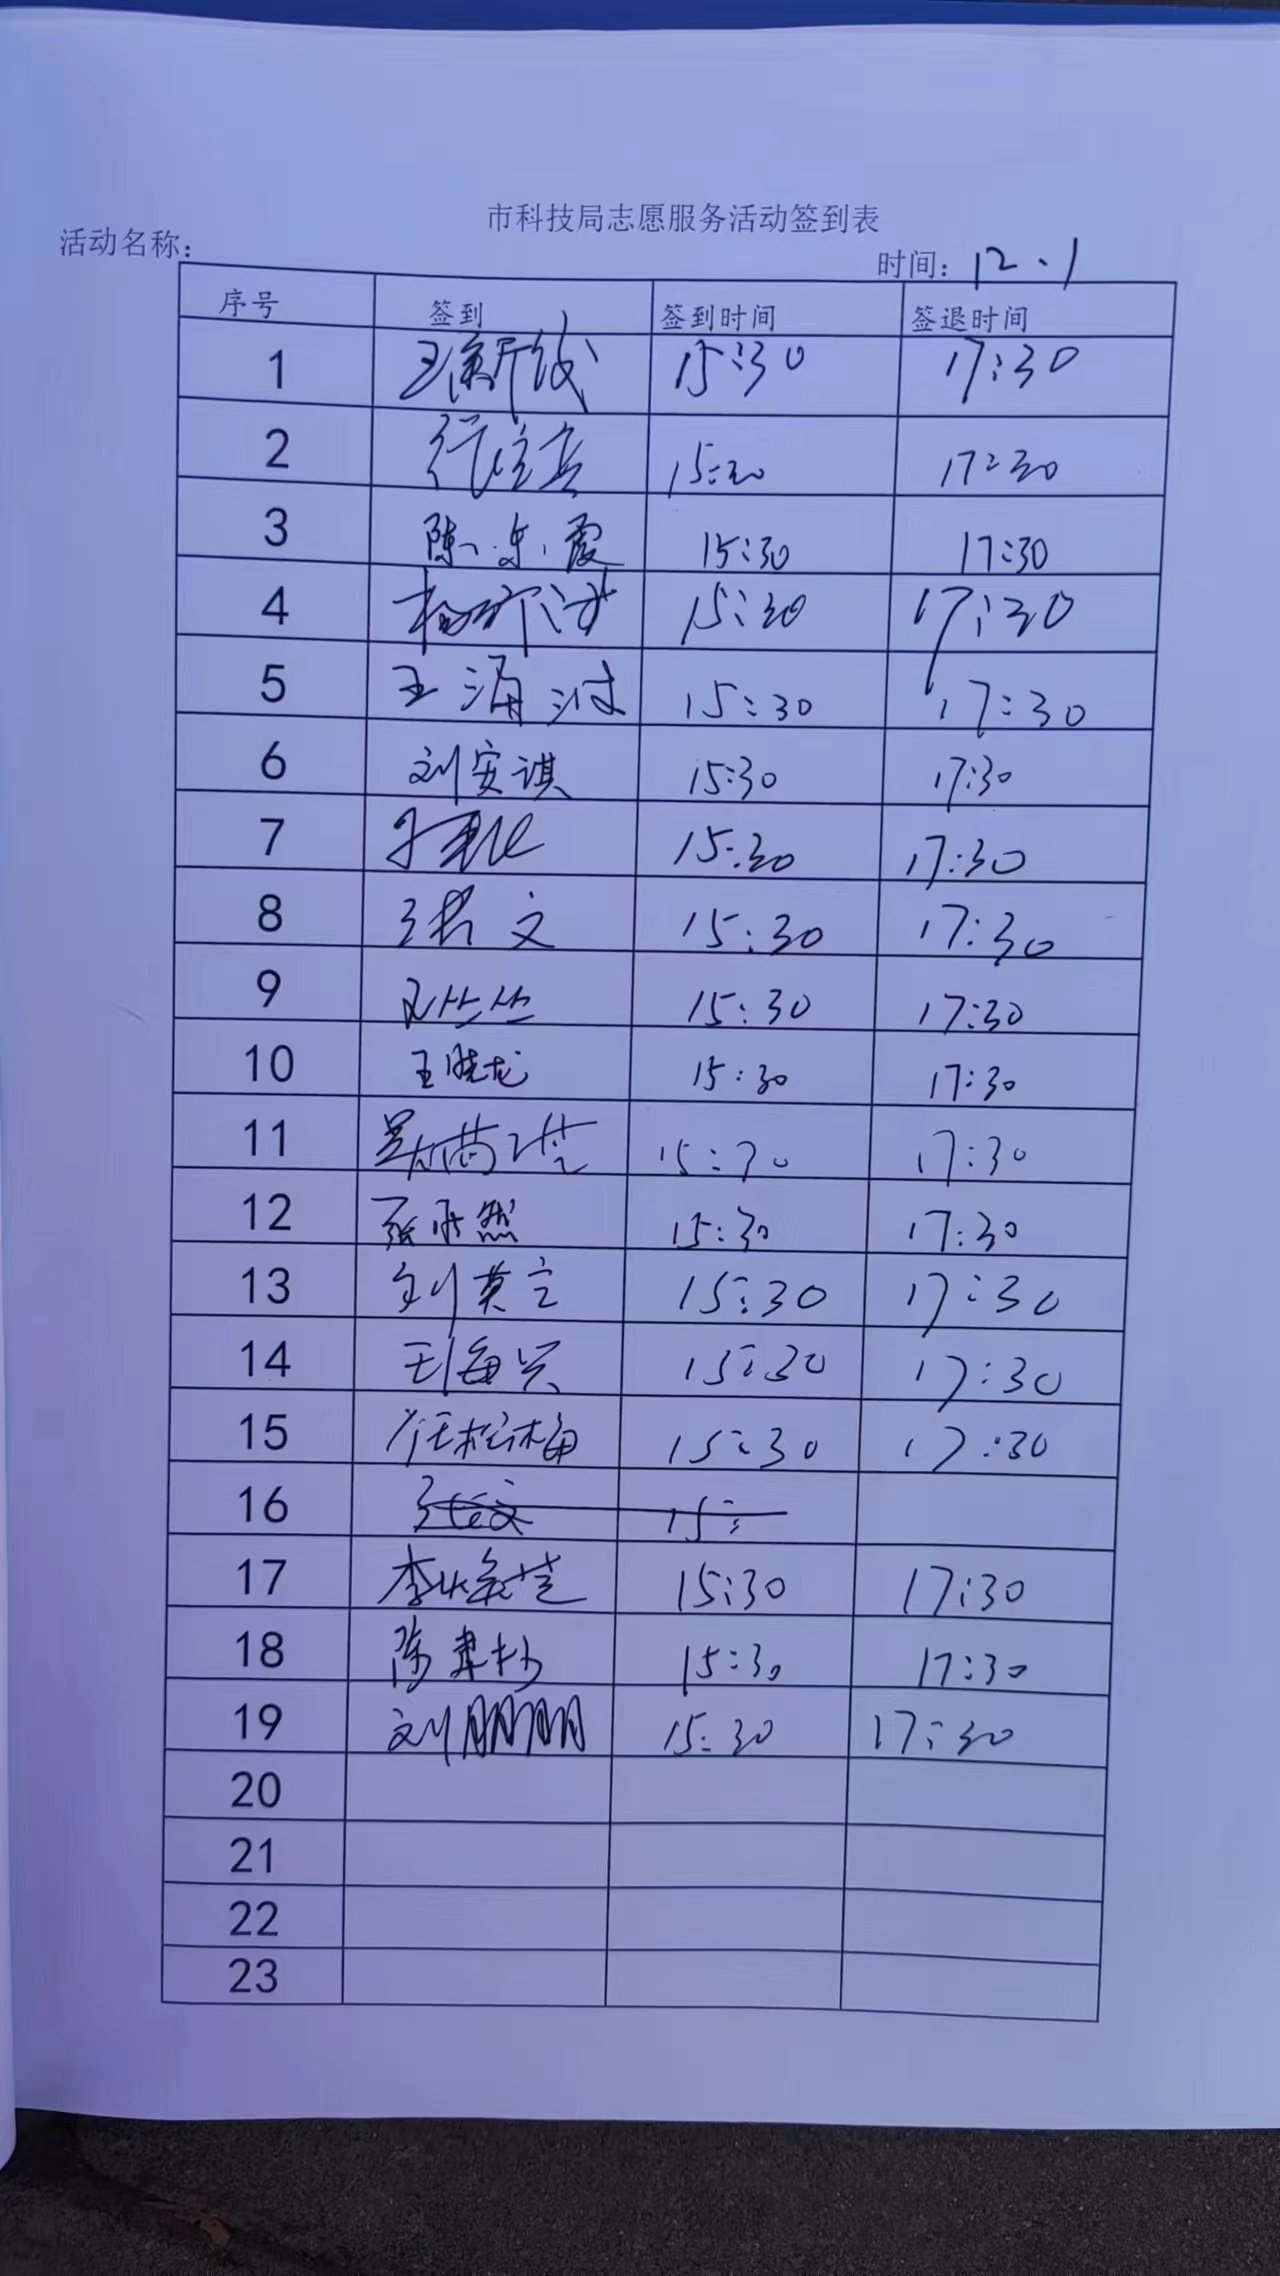 市科技局志愿服务活动签到表
活动名称: 时间: 12.1
序号 签到 签到时间 签退时间
1 王新 15:30 17:30
2 15:30 17:30
3 陈乐霞 15:30 17:30
4 杨 15:30 17:30
5 王涌涛 15:30 17:30
6 刘安琪 15:30 17:30
7 15:30 17:30
8 文 15:30 17:30
9 丛丛 15:30 17:30
10 王晓龙 15:30 17:30
11 15:30 17:30
12 张 然 15:30 17:30
13 刘英 15:30 17:30
14 王海兴 15:30 17:30
15 15:30 17:30
16 15:
17 李 15:30 17:30
18 陈 15:30 17:30
19 刘朋朋 15:30 17:30
20
21
22
23